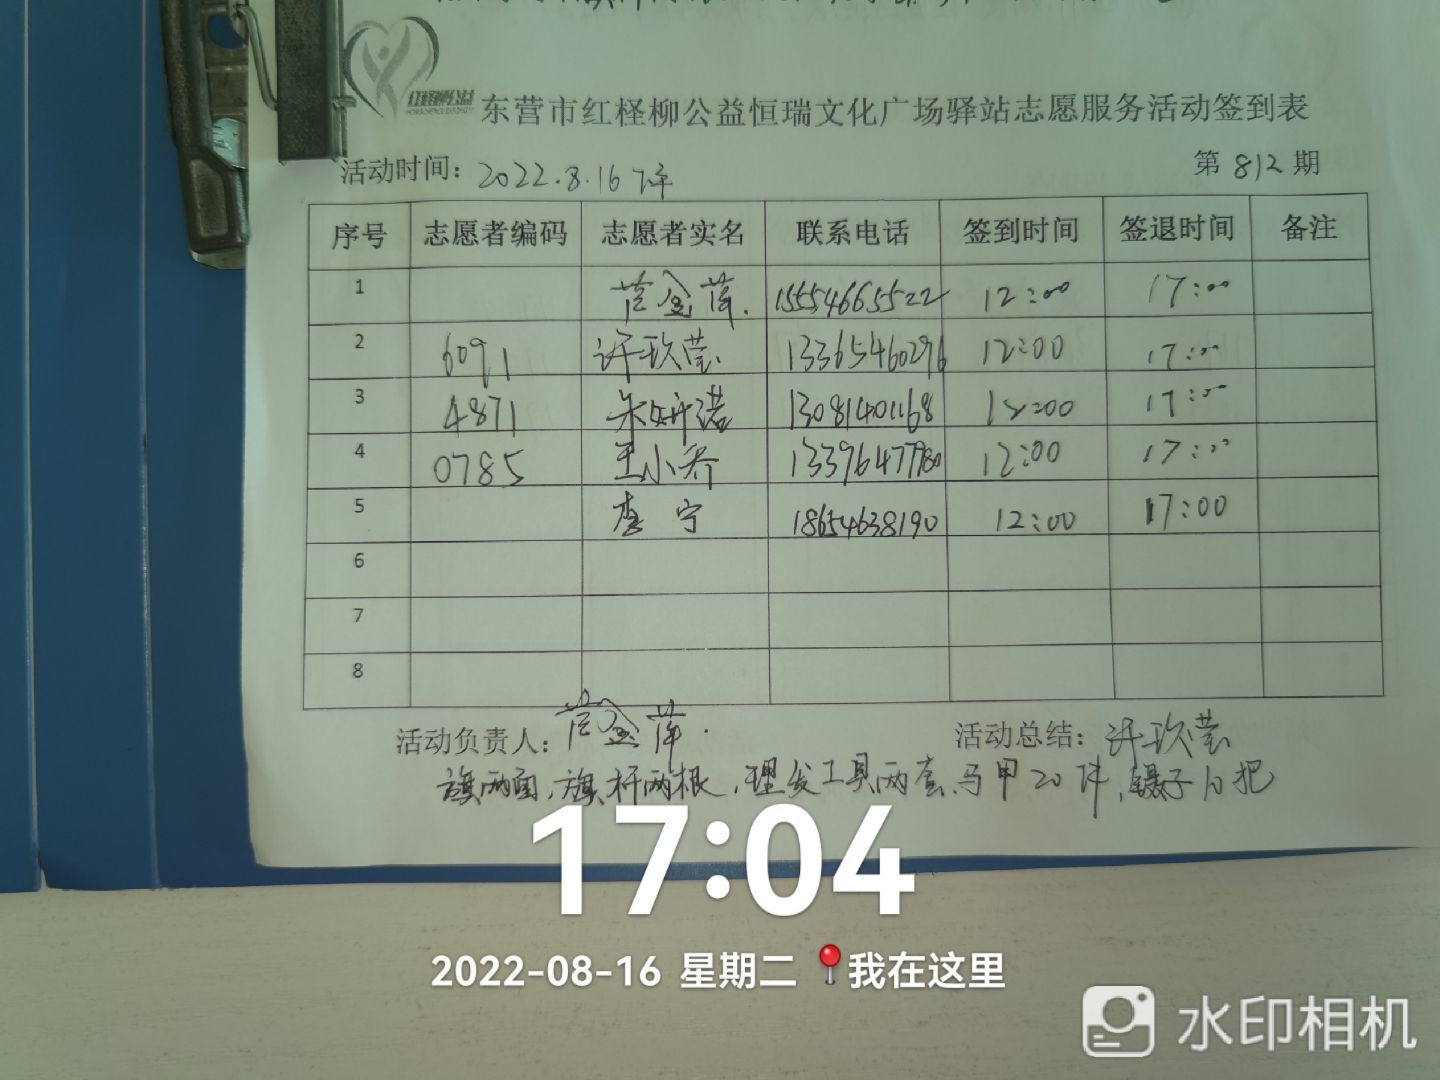 红柽柳公益
东营市红柽柳公益恒瑞文化广场驿站志愿服务活动签到表
活动时间：2022.8.16 下午 第812期
序号 志愿者编码 志愿者实名 联系电话 签到时间 签退时间 备注
1 金萍. 15554665522 12:00 17:00
2 6091 许玖莹. 13365460296 12:00 17:00
3 4871 朱妍诺 13081401168 12:00 17:00
4 0785 王小乔 13396477780 12:00 17:00
5 李宁 18654638190 12:00 17:00
6
7
8
活动负责人：金萍. 活动总结：许玖莹
旗两面，旗杆两根，理发工具两套，马甲20件，镊子10把
17:04
2022-08-16 星期二 我在这里
水印相机